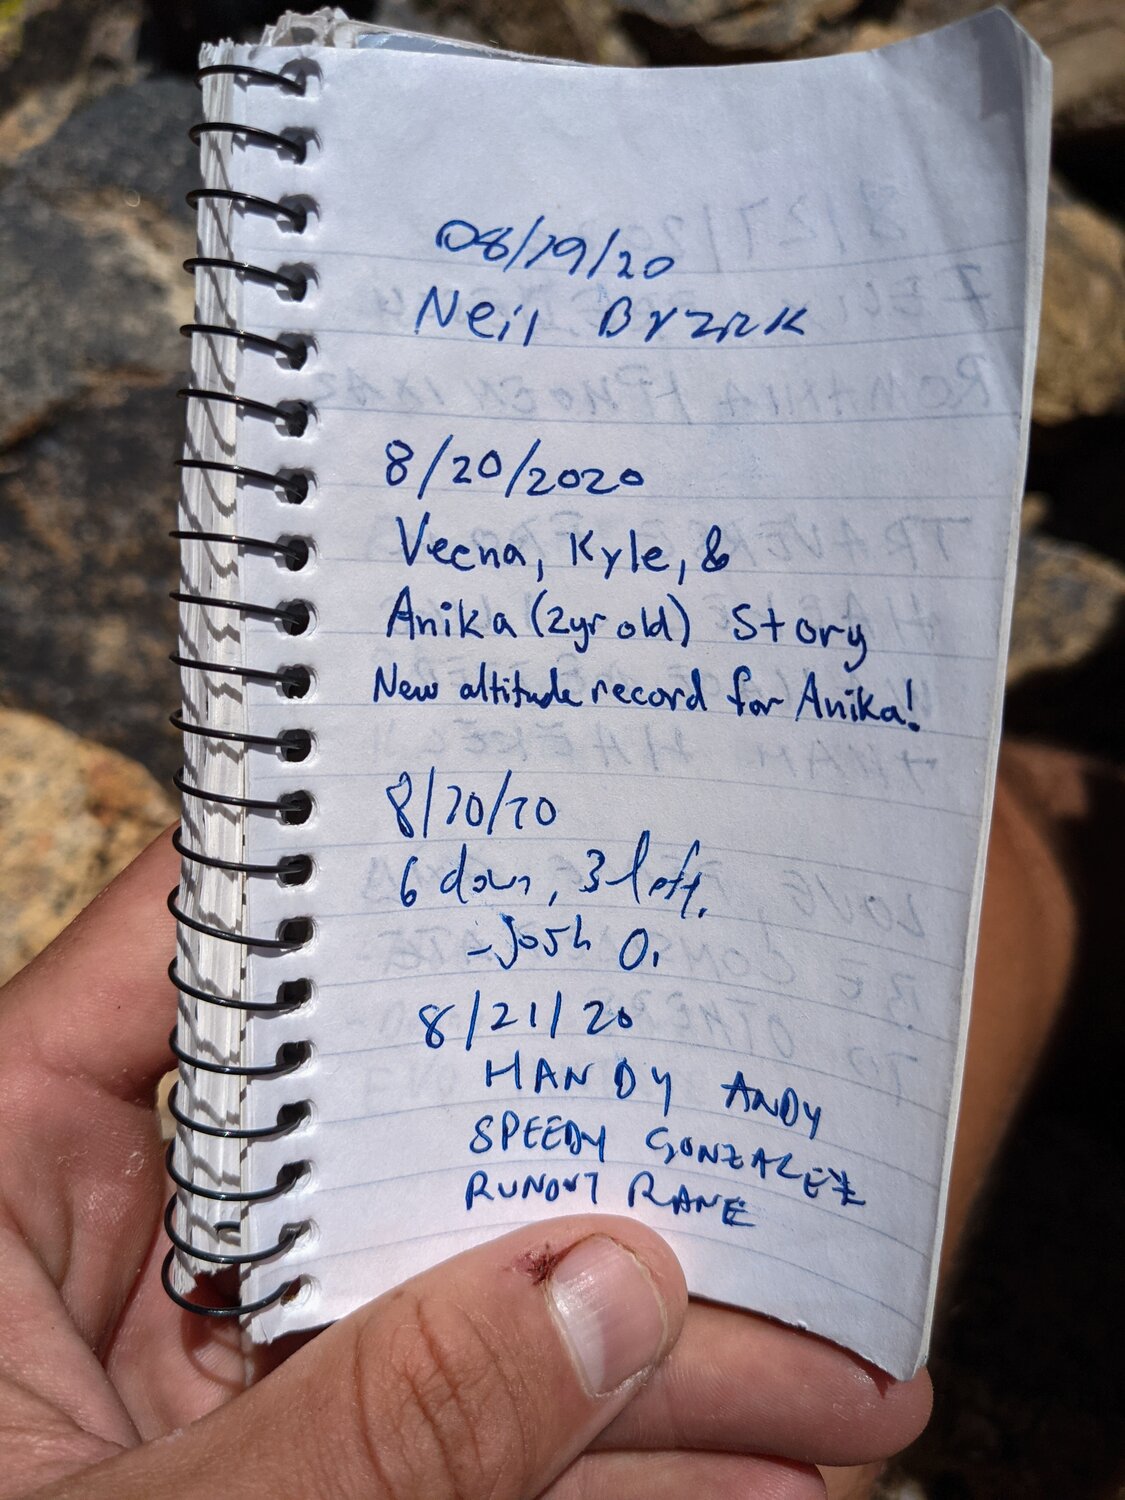 08/19/20
Neil
8/20/2020
Veena, Kyle, &
Anika (2yr old) Story
New altitude record for Anika!
8/20/20
6 down, 3 left.
-Josh O.
8/21/20
HANDY ANDY
SPEEDY GONZALEZ
RUNOUT RANE